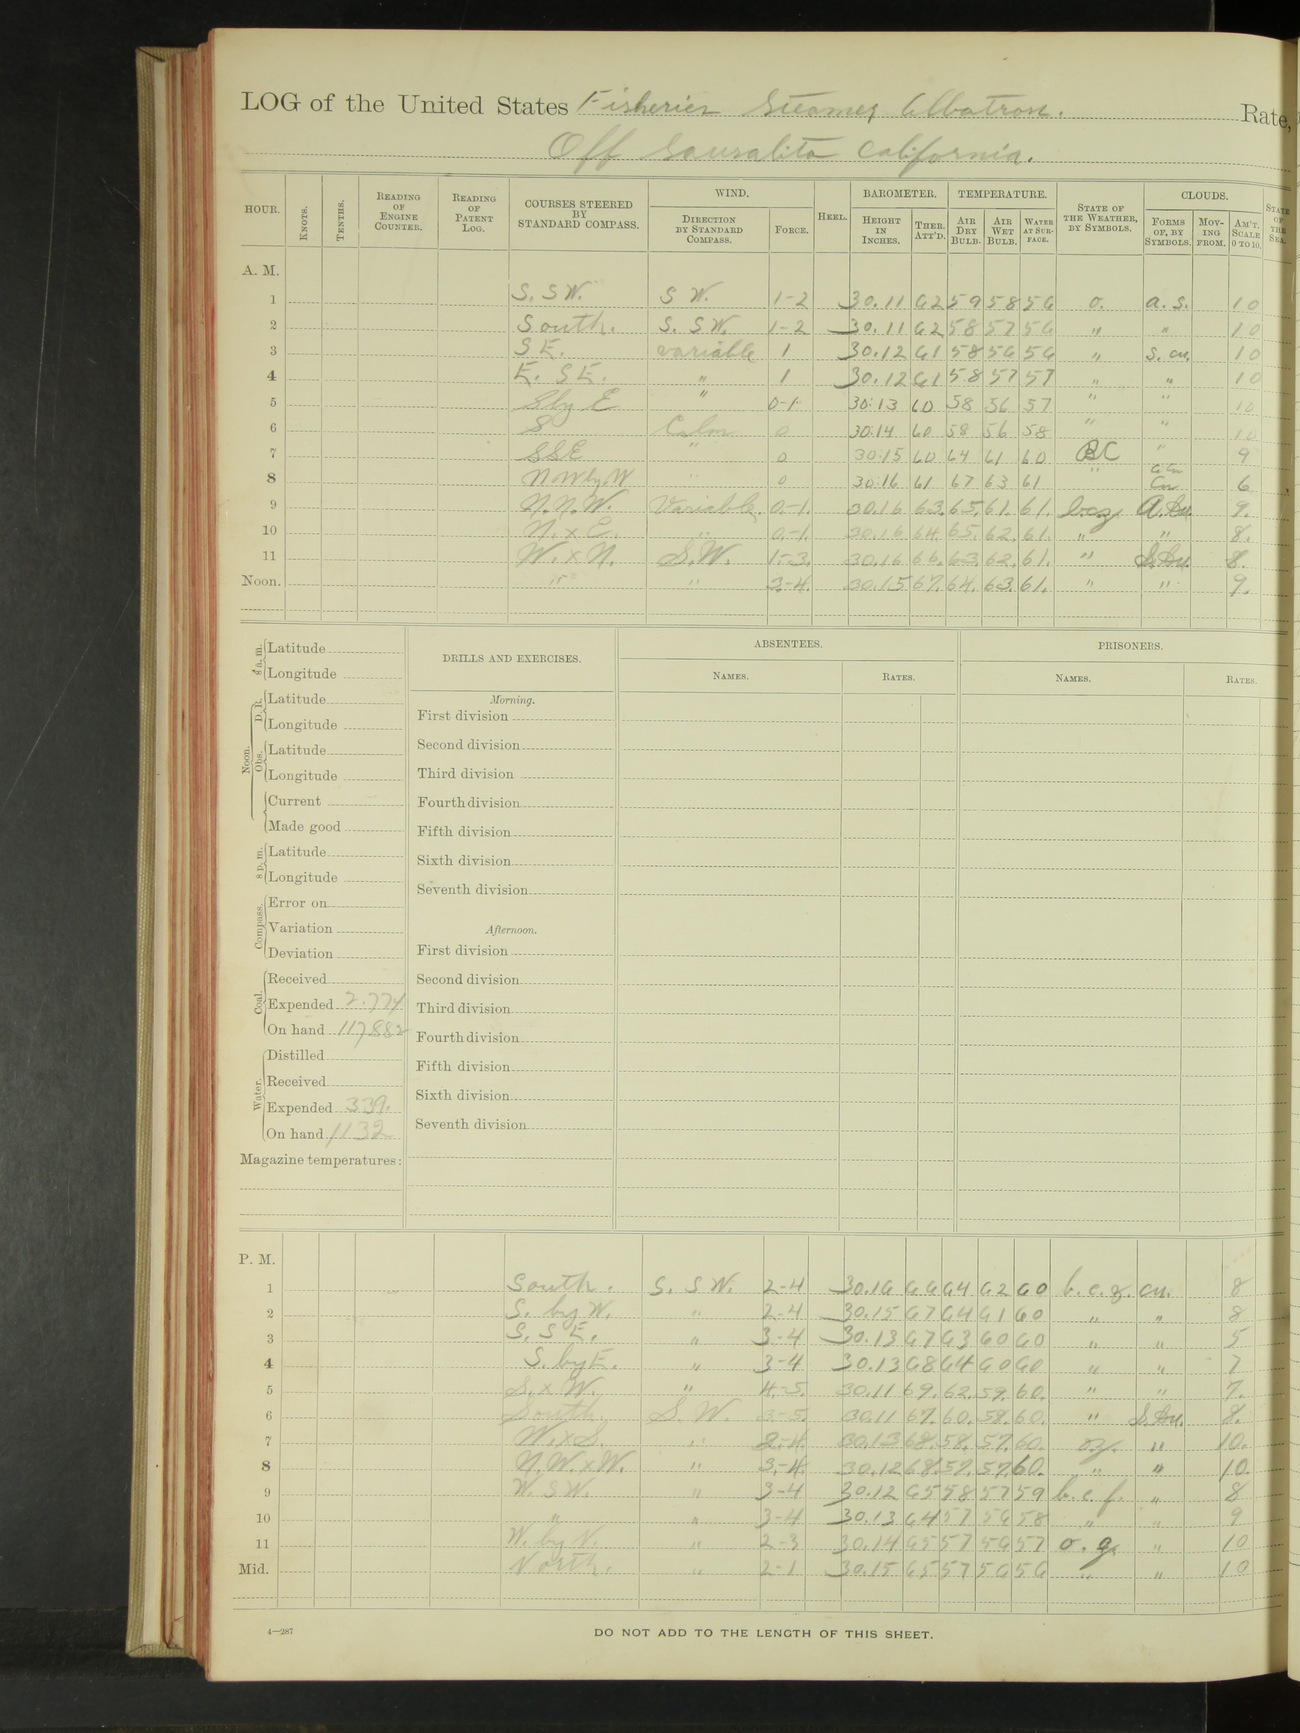 LOG of the United States Fisheries Steamer Albatross. Rate,
Off Sausalito California.
HOUR. KNOTS. TENTHS. READING OF ENGINE COUNTER. READING OF PATENT LOG. COURSES STEERED BY STANDARD COMPASS. WIND. DIRECTION BY STANDARD COMPASS. FORCE. HEEL. BAROMETER. HEIGHT IN INCHES. THER. ATT'D. TEMPERATURE. AIR DRY BULB. AIR WET BULB. WATER AT SURFACE. STATE OF THE WEATHER, BY SYMBOLS. CLOUDS. FORMS OF, BY SYMBOLS. MOVING FROM. AM'T. SCALE 0 TO 10. STATE OF THE SEA.
A. M.
1 S. SW. S W. 1-2 30.11 62 59 58 56 o. a. s. 10
2 South. S. SW. 1-2 30.11 62 58 57 56 " " 10
3 S E. variable 1 30.12 61 58 56 56 " s. cu. 10
4 E. SE. " 1 30.12 61 58 57 57 " " 10
5 S by E " 0-1 30.13 60 58 56 57 " " 10
6 S Calm 0 30.14 60 58 56 58 " " 10
7 SSE " 0 30.15 60 64 61 60 BC " 9
8 NW by W " 0 30.16 61 67 63 61 " Cu 6
9 N.N.W. Variable. 0-1. 30.16 63. 65. 61. 61. bcz A.Cu. 9.
10 N. x E. " 0-1. 30.16 64. 65. 62. 61. " " 8.
11 W. x N. S.W. 1-3. 30.16 66. 63. 62. 61. " S.Cu. 8.
Noon. " " 3-4. 30.15 67. 64. 63. 61. " " 9.
8 a. m. Latitude
Longitude
Noon. D. R. Latitude
Longitude
Obs. Latitude
Longitude
Current
Made good
8 p. m. Latitude
Longitude
Compass. Error on
Variation
Deviation
Coal. Received
Expended 2.774
On hand 117.882
Water. Distilled
Received
Expended 339.
On hand 1132
Magazine temperatures:
DRILLS AND EXERCISES.
Morning.
First division
Second division
Third division
Fourth division
Fifth division
Sixth division
Seventh division
Afternoon.
First division
Second division
Third division
Fourth division
Fifth division
Sixth division
Seventh division
ABSENTEES.
NAMES. RATES.
PRISONERS.
NAMES. RATES.
P. M.
1 South. S. SW. 2-4 30.16 66 64 62 60 b.c.z. cu. 8
2 S. by W. " 2-4 30.15 67 64 61 60 " " 8
3 S. S E. " 3-4 30.13 67 63 60 60 " " 5
4 S. by E. " 3-4 30.13 68 64 60 60 " " 7
5 S. x W. " 4-5. 30.11 69. 62. 59. 60. " " 7.
6 South, S. W. 3-5. 30.11 67. 60. 58. 60. " S.Cu. 8.
7 W. x S. " 2-4. 30.13 68. 58. 57. 60. oz. " 10.
8 N.W. x W. " 3-4. 30.12 68. 57. 57. 60. " " 10.
9 W. SW. " 3-4 30.12 65 58 57 59 b.c.f. " 8
10 " " 3-4 30.13 64 57 56 58 " " 9
11 W. by N. " 2-3 30.14 65 57 56 57 o. g. " 10
Mid. North. " 2-1 30.15 65 57 56 56 " " 10
4—287
DO NOT ADD TO THE LENGTH OF THIS SHEET.